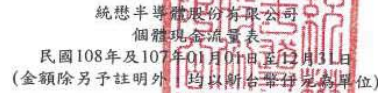 統懋半導體股份有限公司
個體現金流量表
民國108年及107年01月01日至12月31日
(金額除另予註明外，均以新台幣仟元為單位)